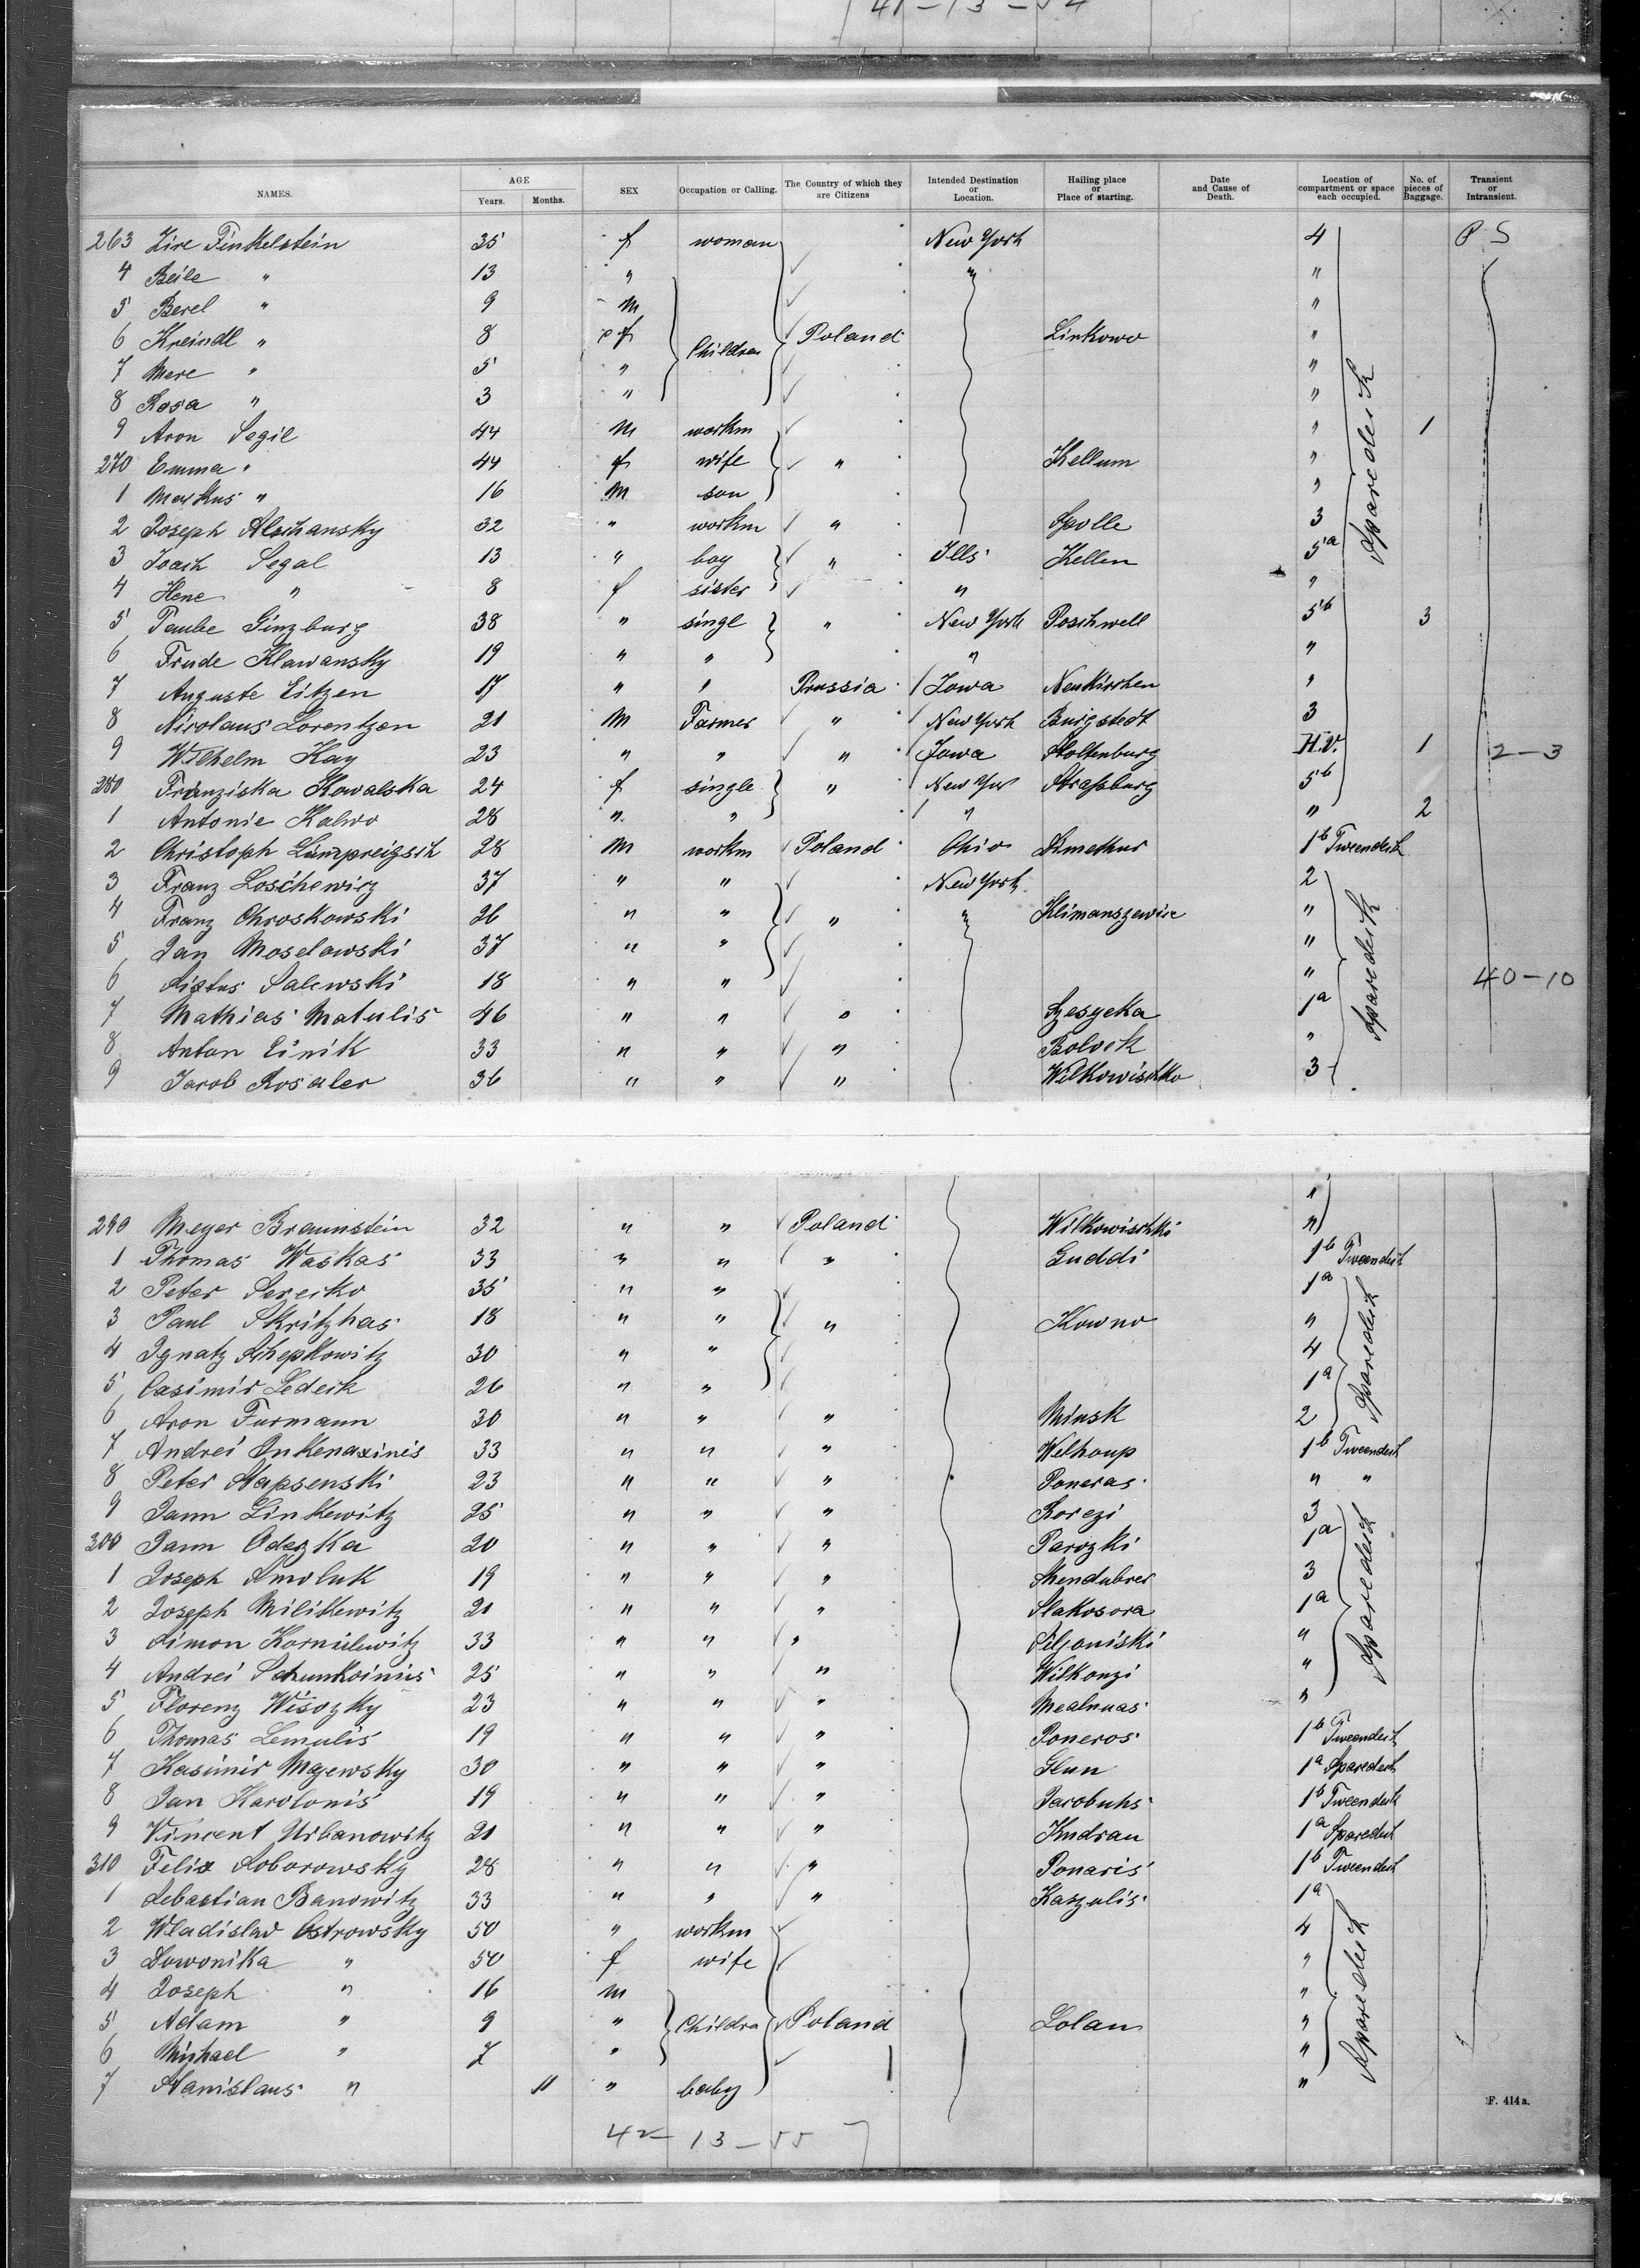 41 - 13 - 54
NAMES. AGE Years. Months. SEX Occupation or Calling. The Country of which they are Citizens Intended Destination or Location. Hailing place or Place of starting. Date and Cause of Death. Location of compartment or space each occupied. No. of pieces of Baggage. Transient or Intransient.
263 Zire Finkelstein 35 f woman New York 4 P S
4 Beile " 13 " " "
5 Berel " 9 M "
6 Kreindl " 8 f Children Poland Linkowo "
7 Mere " 5 " "
8 Rosa " 3 " "
9 Aron Segil 44 M workm " 1
270 Emma " 44 f wife " Kellum "
1 Markus " 16 M son "
2 Joseph Alschansky 32 " workm " Spolle 3
3 Joach Segal 13 " boy " Ills Kellen 5a
4 Hene " 8 f sister " "
5 Taube Ginzburg 38 " singl " New York Poschwell 5b 3
6 Frude Klawansky 19 " " " "
7 Auguste Eitzen 17 " " Prussia Iowa Neukirchen "
8 Nicolaus Lorentzen 21 M Farmer " New York Burgstedt 3
9 Wilhelm Kay 23 " " " Iowa Stoltenburg H.V. 1 2-3
280 Franziska Kowalska 24 f single " New York Straßburg 5b
1 Antonie Kalwo 28 " " " " 2
2 Christoph Lumpreigsch 28 M workm Poland Ohio 1b Tweendeck
3 Franz Loschewicz 37 " " New York 2
4 Franz Chroskowski 26 " " " " Klimanszewice "
5 Jan Moselowski 37 " " "
6 Sixtus Salewski 18 " " " 40-10
7 Mathias Matulis 46 " " " 1a
8 Anton Einik 33 " " " Bolock "
9 Jacob Rosaler 36 " " " Wilkowischko 3
Sparedeck
Sparedeck
"
290 Meyer Braunstein 32 " " Poland Wilkowischki "
1 Thomas Waskas 33 " " " Guddi 1b Tweendeck
2 Peter Sereiko 35 " " 1a
3 Paul Skritzhas 18 " " " Kowno "
4 Ignatz Schepkowitz 30 " " 4
5 Casimir Ledeck 26 " " 1a
6 Aron Furmann 30 " " " Minsk 2
Sparedeck
7 Andrei Ankenaxinis 33 " " " Welhoup 1b Tweendeck
8 Peter Stapsenski 23 " " " Poneras " "
9 Jann Linkewitz 25 " " " Rorezi 3
300 Jann Oderzka 20 " " " Parozki 1a
1 Joseph Smoluk 19 " " " Mendubrer 3
2 Joseph Milikewitz 21 " " " Slakosora 1a
3 Simon Kornilewitz 33 " " " Siljoniski "
4 Andrei 25 " " " Wilkonzi "
5 Florenz Wisozky 23 " " " Mealnuas "
Sparedeck
6 Thomas Lemulis 19 " " " Poneros 1b Tweendeck
7 Kasimir Majewsky 30 " " " 1a Sparedeck
8 Jan Karolonis 19 " " " Jacobuhs 1b Tweendeck
9 Vincent Urbanowitz 21 " " " Kudran 1a Sparedeck
310 Felix Soborowsky 28 " " " Ponaris 1b Tweendeck
1 Sebastian Banowitz 33 " " " Kaszulis 1a
2 Wladislav Ostrowsky 50 " workm 4
3 Dowonika " 50 f wife "
4 Joseph " 16 M "
5 Adam " 9 " Childra Poland Lolan "
6 Michael " 7 " "
7 Stanislaus " 11 " baby "
Sparedeck
F. 414 a.
42 - 13 - 55